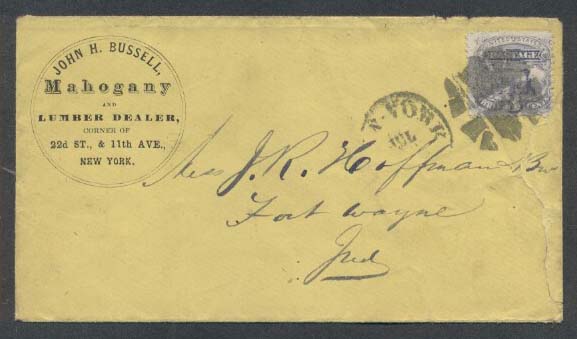 JOHN H. BUSSELL,
Mahogany
AND
LUMBER DEALER,
CORNER OF
22d ST., & 11th AVE.,
NEW YORK.
N-YORK
JUL
Mess J. R. Hoffman & Bro
Fort Wayne
Ind